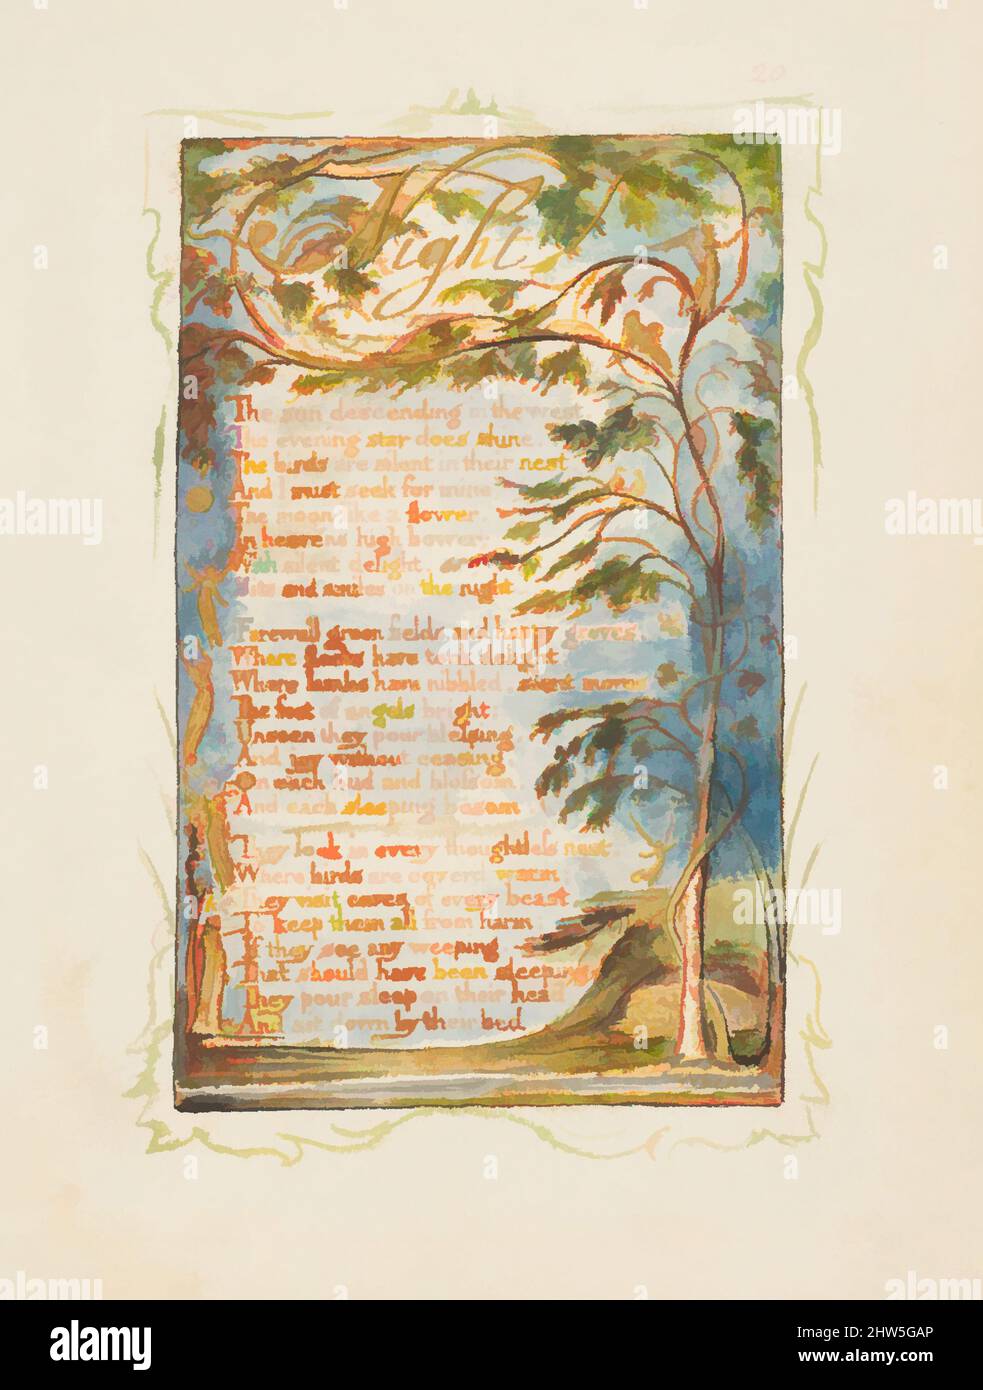 20
Night
The sun descending in the west
The evening star does shine.
The birds are silent in their nest
And I must seek for mine
The moon like a flower,
In heavens high bower;
With silent delight,
Sits and smiles on the night
Farewell green fields and happy groves,
Where flocks have took delight
Where lambs have nibbled, silent moves
The feet of angels bright;
Unseen they pour blessing,
And joy without ceasing,
On each bud and blossom,
And each sleeping bosom
They look in every thoughtless nest
Where birds are coverd warm;
They visit caves of every beast,
To keep them all from harm
If they see any weeping,
That should have been sleeping
They pour sleep on their head
And sit down by their bed
alamy
Image ID: 2HW5GAP
www.alamy.com